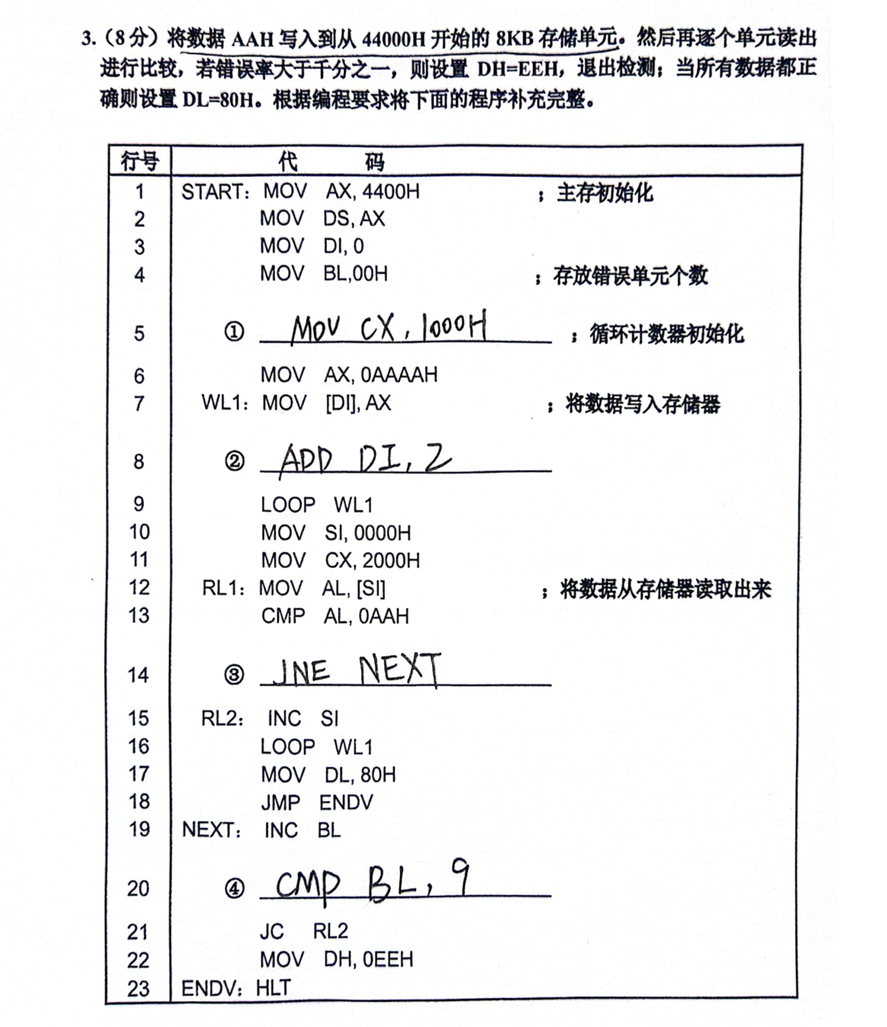 3.（8 分）将数据 AAH 写入到从 44000H 开始的 8KB 存储单元。然后再逐个单元读出
进行比较，若错误率大于千分之一，则设置 DH=EEH，退出检测；当所有数据都正
确则设置 DL=80H。根据编程要求将下面的程序补充完整。
行号 代 码
1 START：MOV AX, 4400H ；主存初始化
2 MOV DS, AX
3 MOV DI, 0
4 MOV BL,00H ；存放错误单元个数
5 ① MOV CX, 1000H ；循环计数器初始化
6 MOV AX, 0AAAAH
7 WL1：MOV [DI], AX ；将数据写入存储器
8 ② ADD DI, 2
9 LOOP WL1
10 MOV SI, 0000H
11 MOV CX, 2000H
12 RL1：MOV AL, [SI] ；将数据从存储器读取出来
13 CMP AL, 0AAH
14 ③ JNE NEXT
15 RL2： INC SI
16 LOOP WL1
17 MOV DL, 80H
18 JMP ENDV
19 NEXT： INC BL
20 ④ CMP BL, 9
21 JC RL2
22 MOV DH, 0EEH
23 ENDV：HLT